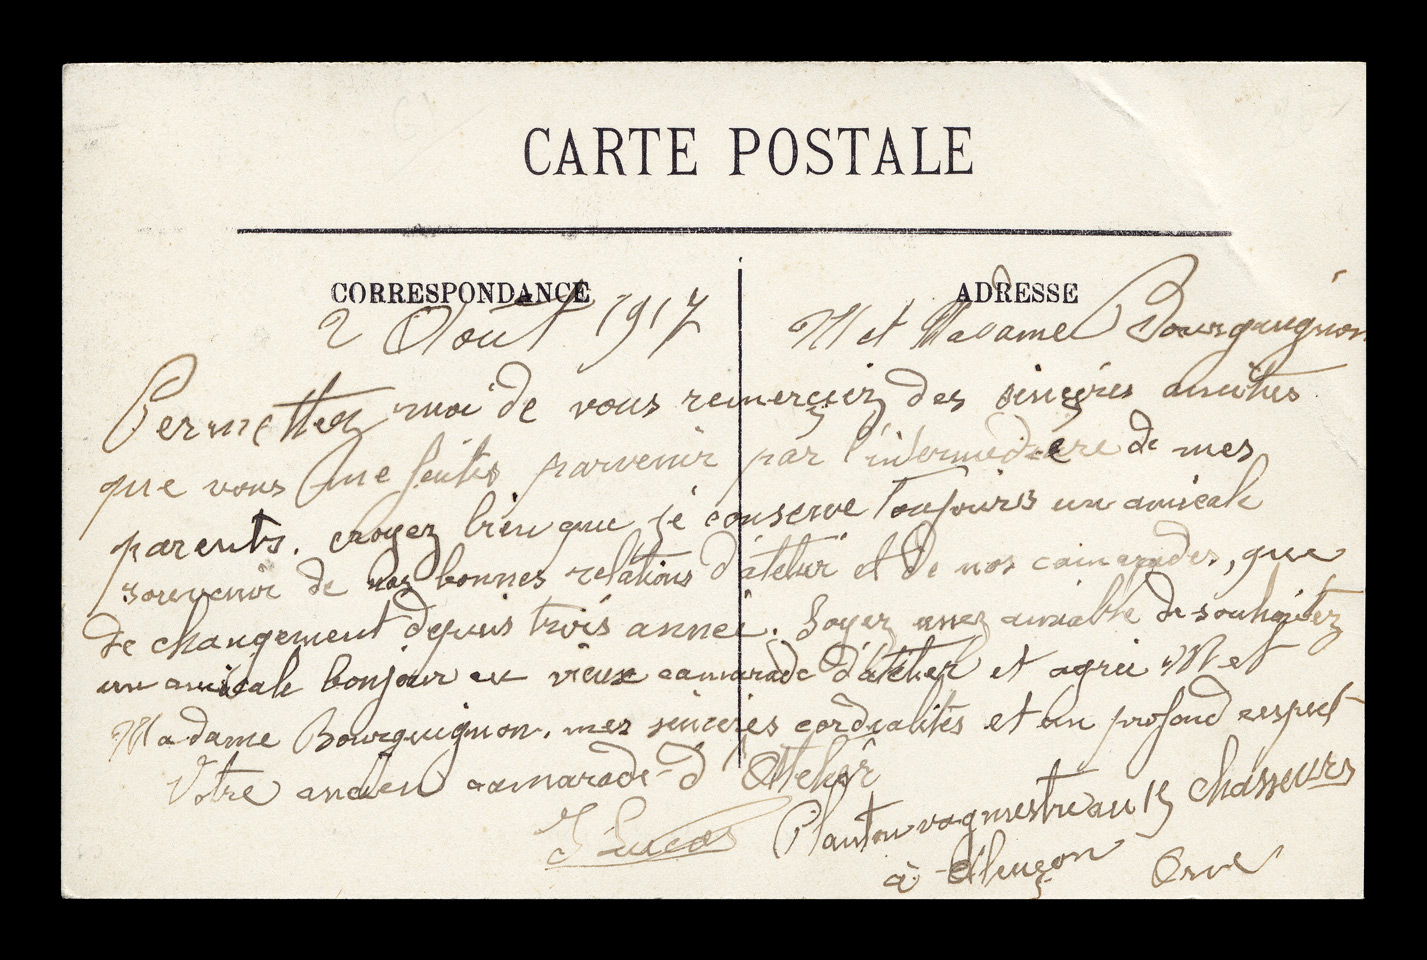 CARTE POSTALE
CORRESPONDANCE
ADRESSE
2 Août 1917
M et Madame Bourguignon
Permettez moi de vous remerciez des sincéres amitiés
que vous me faites parvenir par l'intermediére de mes
parents. croyez bien que je conserve toujours un amicale
souvenir de nos bonnes relations d'atelier et de nos camarades, que
de changement depuis trois année. Soyez assez aimable de souhaitez
un amicale bonjour au vieux camarade d'atelier et agrée M et
Madame Bourguignon. mes sincéres cordialités et un profond respect
Votre ancien camarade d'Atelier
J Lucas
Planton vagmestre au 15 chasseurs
à Alençon Orne